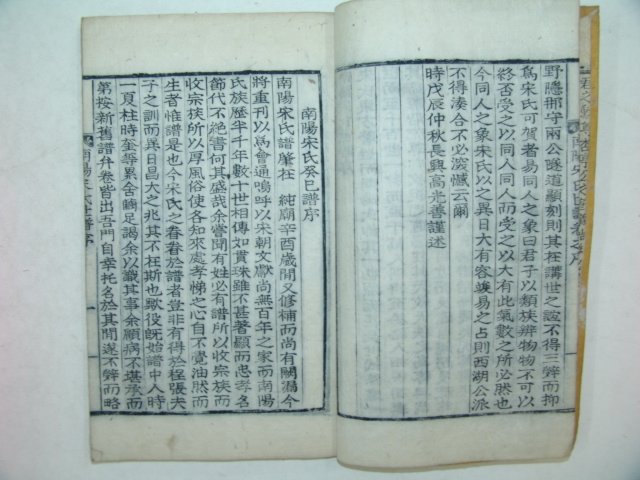 野隱那守兩公隧道顯刻則其在講世之誼不得三辭而抑
爲宋氏可賀者易同人之象曰君子以類族辨物物不可以
終否受之以同人同人而受之以大有此氣數之所必然也
今同人之象宋氏以之異日大有容俟易之占則西湖公派
不得湊合不必深憾云爾
時戊辰仲秋長興高光善謹述
南陽宋氏癸巳譜序
南陽宋氏譜肇在 純廟辛酉歲閒又修補而尚有闕漏今
將重刊以爲會通嗚呼以宋朝文獻尚無百年之家而南陽
氏族歷半千年數十世相傳如貫珠雖不甚著顯而忠孝名
節代不絕書何其盛哉余嘗聞有姓必有譜所以收宗族而
收宗族所以厚風俗使各知來處孝悌之心自不覺油然而
生者惟譜是也今宋氏之眷眷於譜者豈非有得於程張夫
子之訓而異日昌大之兆其不在斯也歟役旣始譜中人時
一夏柱時奎等累舍踰足謁余以識其事余顧病不堪承而
第按新舊譜弁卷皆出吾門自幸托名於其間遂不辭而略
南陽宋氏世譜序